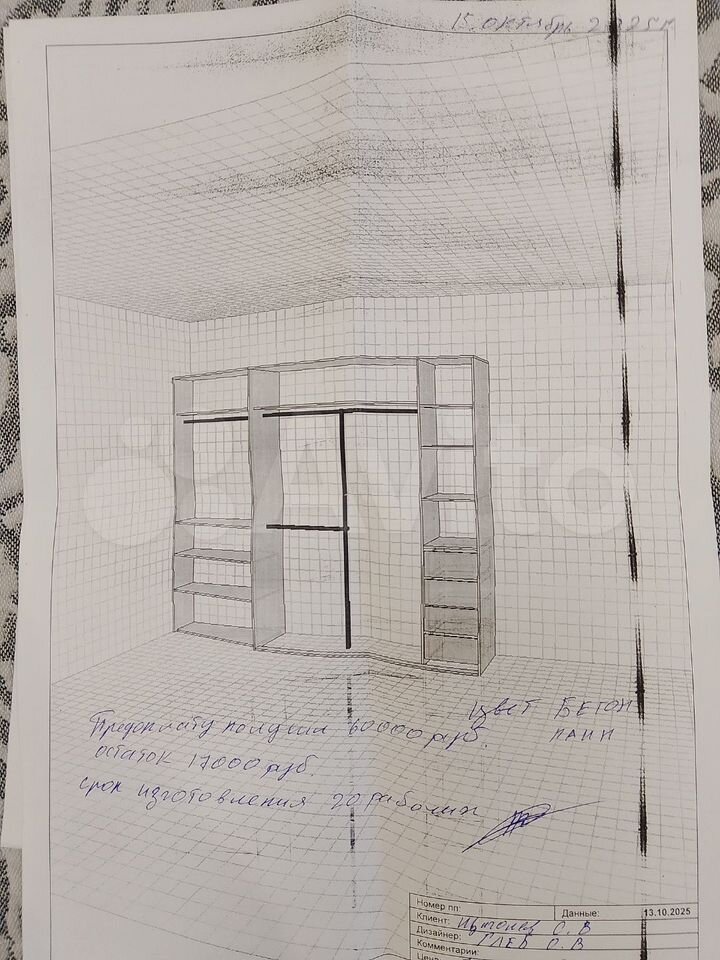 15 октябрь 2025 г
Avito
Предоплату получил 60000 руб.
остаток 17000 руб.
срок изготовления 20 рабочих
Цвет Бетон
пайн
Номер пп:
Данные: 13.10.2025
Клиент: С. В
Дизайнер: О. В
Комментарии:
Цена